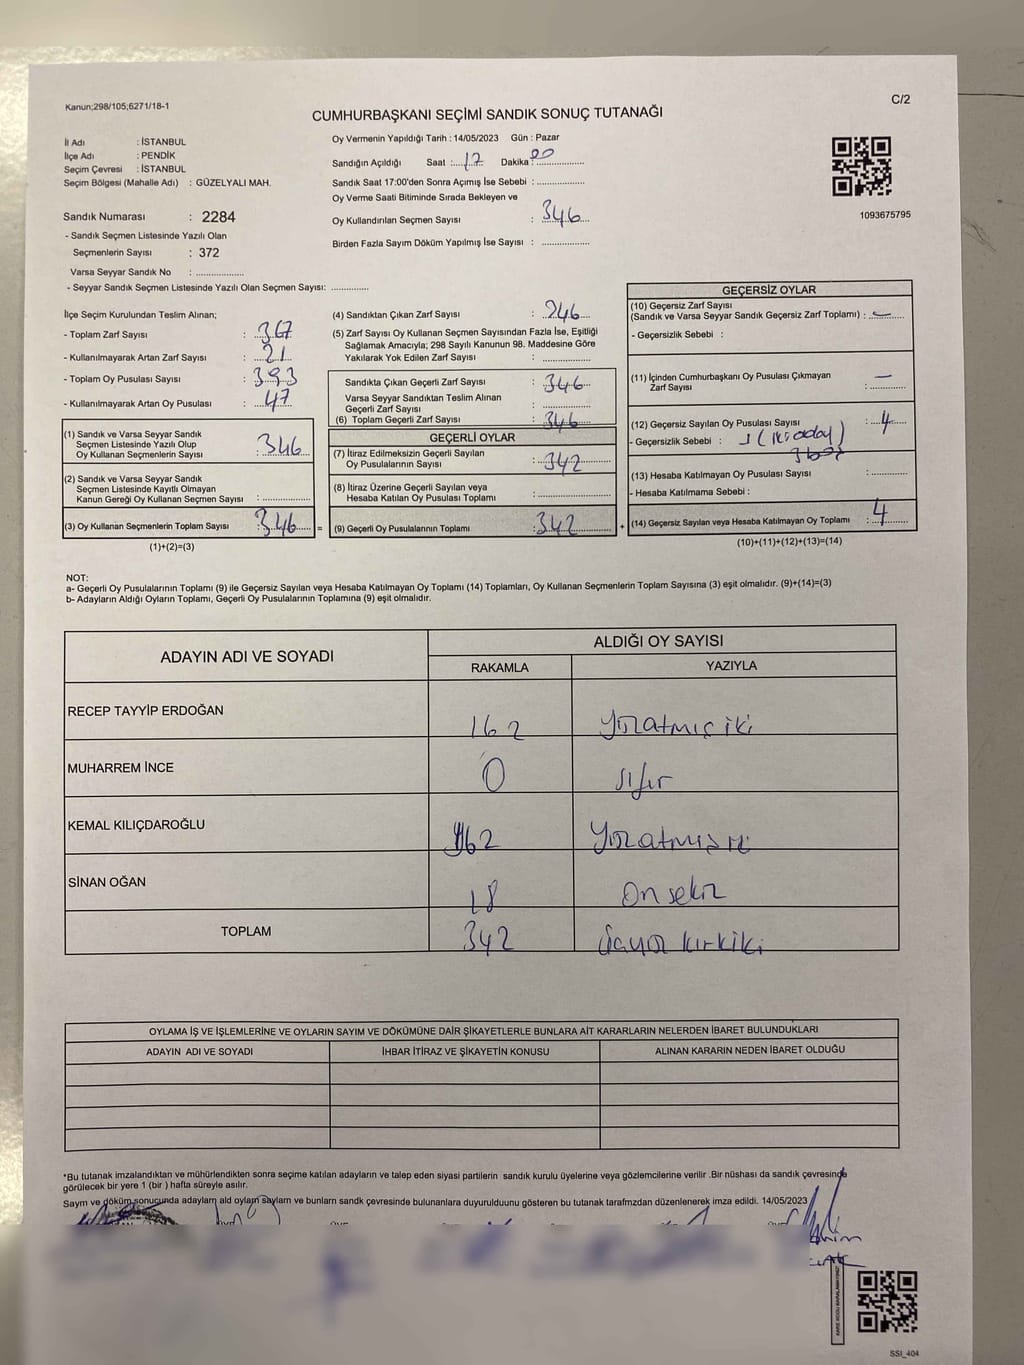 Kanun;298/105;6271/18-1
C/2
CUMHURBAŞKANI SEÇİMİ SANDIK SONUÇ TUTANAĞI
İl Adı : İSTANBUL
İlçe Adı : PENDİK
Seçim Çevresi : İSTANBUL
Seçim Bölgesi (Mahalle Adı) : GÜZELYALI MAH.
Sandık Numarası : 2284
- Sandık Seçmen Listesinde Yazılı Olan
Seçmenlerin Sayısı : 372
Varsa Seyyar Sandık No : ..................
- Seyyar Sandık Seçmen Listesinde Yazılı Olan Seçmen Sayısı: ..............
Oy Vermenin Yapıldığı Tarih : 14/05/2023 Gün : Pazar
Sandığın Açıldığı Saat : 17 Dakika : 00
Sandık Saat 17:00'den Sonra Açımış İse Sebebi : ..................
Oy Verme Saati Bitiminde Sırada Bekleyen ve
Oy Kullandırılan Seçmen Sayısı : 346
Birden Fazla Sayım Döküm Yapılmış İse Sayısı : ..................
1093675795
İlçe Seçim Kurulundan Teslim Alınan;
- Toplam Zarf Sayısı : 367
- Kullanılmayarak Artan Zarf Sayısı : 21
- Toplam Oy Pusulası Sayısı : 393
- Kullanılmayarak Artan Oy Pusulası : 47
(1) Sandık ve Varsa Seyyar Sandık
Seçmen Listesinde Yazılı Olup
Oy Kullanan Seçmenlerin Sayısı : 346
(2) Sandık ve Varsa Seyyar Sandık
Seçmen Listesinde Kayıtlı Olmayan
Kanun Gereği Oy Kullanan Seçmen Sayısı : ..................
(3) Oy Kullanan Seçmenlerin Toplam Sayısı : 346 =
(1)+(2)=(3)
(4) Sandıktan Çıkan Zarf Sayısı : 346
(5) Zarf Sayısı Oy Kullanan Seçmen Sayısından Fazla İse, Eşitliği
Sağlamak Amacıyla; 298 Sayılı Kanunun 98. Maddesine Göre
Yakılarak Yok Edilen Zarf Sayısı : ..................
Sandıkta Çıkan Geçerli Zarf Sayısı : 346
Varsa Seyyar Sandıktan Teslim Alınan
Geçerli Zarf Sayısı : ..................
(6) Toplam Geçerli Zarf Sayısı : 346
GEÇERLİ OYLAR
(7) İtiraz Edilmeksizin Geçerli Sayılan
Oy Pusulalarının Sayısı : 342
(8) İtiraz Üzerine Geçerli Sayılan veya
Hesaba Katılan Oy Pusulası Toplamı : ..................
(9) Geçerli Oy Pusulalarının Toplamı : 342 +
GEÇERSİZ OYLAR
(10) Geçersiz Zarf Sayısı
(Sandık ve Varsa Seyyar Sandık Geçersiz Zarf Toplamı) : —
- Geçersizlik Sebebi :
(11) İçinden Cumhurbaşkanı Oy Pusulası Çıkmayan
Zarf Sayısı : —
(12) Geçersiz Sayılan Oy Pusulası Sayısı : 4
- Geçersizlik Sebebi : 1 (iki aday)
3 boş
(13) Hesaba Katılmayan Oy Pusulası Sayısı : ..................
- Hesaba Katılmama Sebebi :
(14) Geçersiz Sayılan veya Hesaba Katılmayan Oy Toplamı : 4
(10)+(11)+(12)+(13)=(14)
NOT:
a- Geçerli Oy Pusulalarının Toplamı (9) ile Geçersiz Sayılan veya Hesaba Katılmayan Oy Toplamı (14) Toplamları, Oy Kullanan Seçmenlerin Toplam Sayısına (3) eşit olmalıdır. (9)+(14)=(3)
b- Adayların Aldığı Oyların Toplamı, Geçerli Oy Pusulalarının Toplamına (9) eşit olmalıdır.
ADAYIN ADI VE SOYADI ALDIĞI OY SAYISI
RAKAMLA YAZIYLA
RECEP TAYYİP ERDOĞAN 162 Yüzatmış iki
MUHARREM İNCE 0 sıfır
KEMAL KILIÇDAROĞLU 162 Yüzatmış
SİNAN OĞAN 18 On sekiz
TOPLAM 342 üçyüz kırkiki
OYLAMA İŞ VE İŞLEMLERİNE VE OYLARIN SAYIM VE DÖKÜMÜNE DAİR ŞİKAYETLERLE BUNLARA AİT KARARLARIN NELERDEN İBARET BULUNDUKLARI
ADAYIN ADI VE SOYADI İHBAR İTİRAZ VE ŞİKAYETİN KONUSU ALINAN KARARIN NEDEN İBARET OLDUĞU
*Bu tutanak imzalandıktan ve mühürlendikten sonra seçime katılan adayların ve talep eden siyasi partilerin sandık kurulu üyelerine veya gözlemcilerine verilir .Bir nüshası da sandık çevresinde
görülecek bir yere 1 (bir ) hafta süreyle asılır.
Sayım ve döküm sonucunda adayların ald oyların saylarn ve bunların sandk çevresinde bulunanlara duyurulduunu gösteren bu tutanak tarafmzdan düzenlenerek imza edildi. 14/05/2023
SSI_404